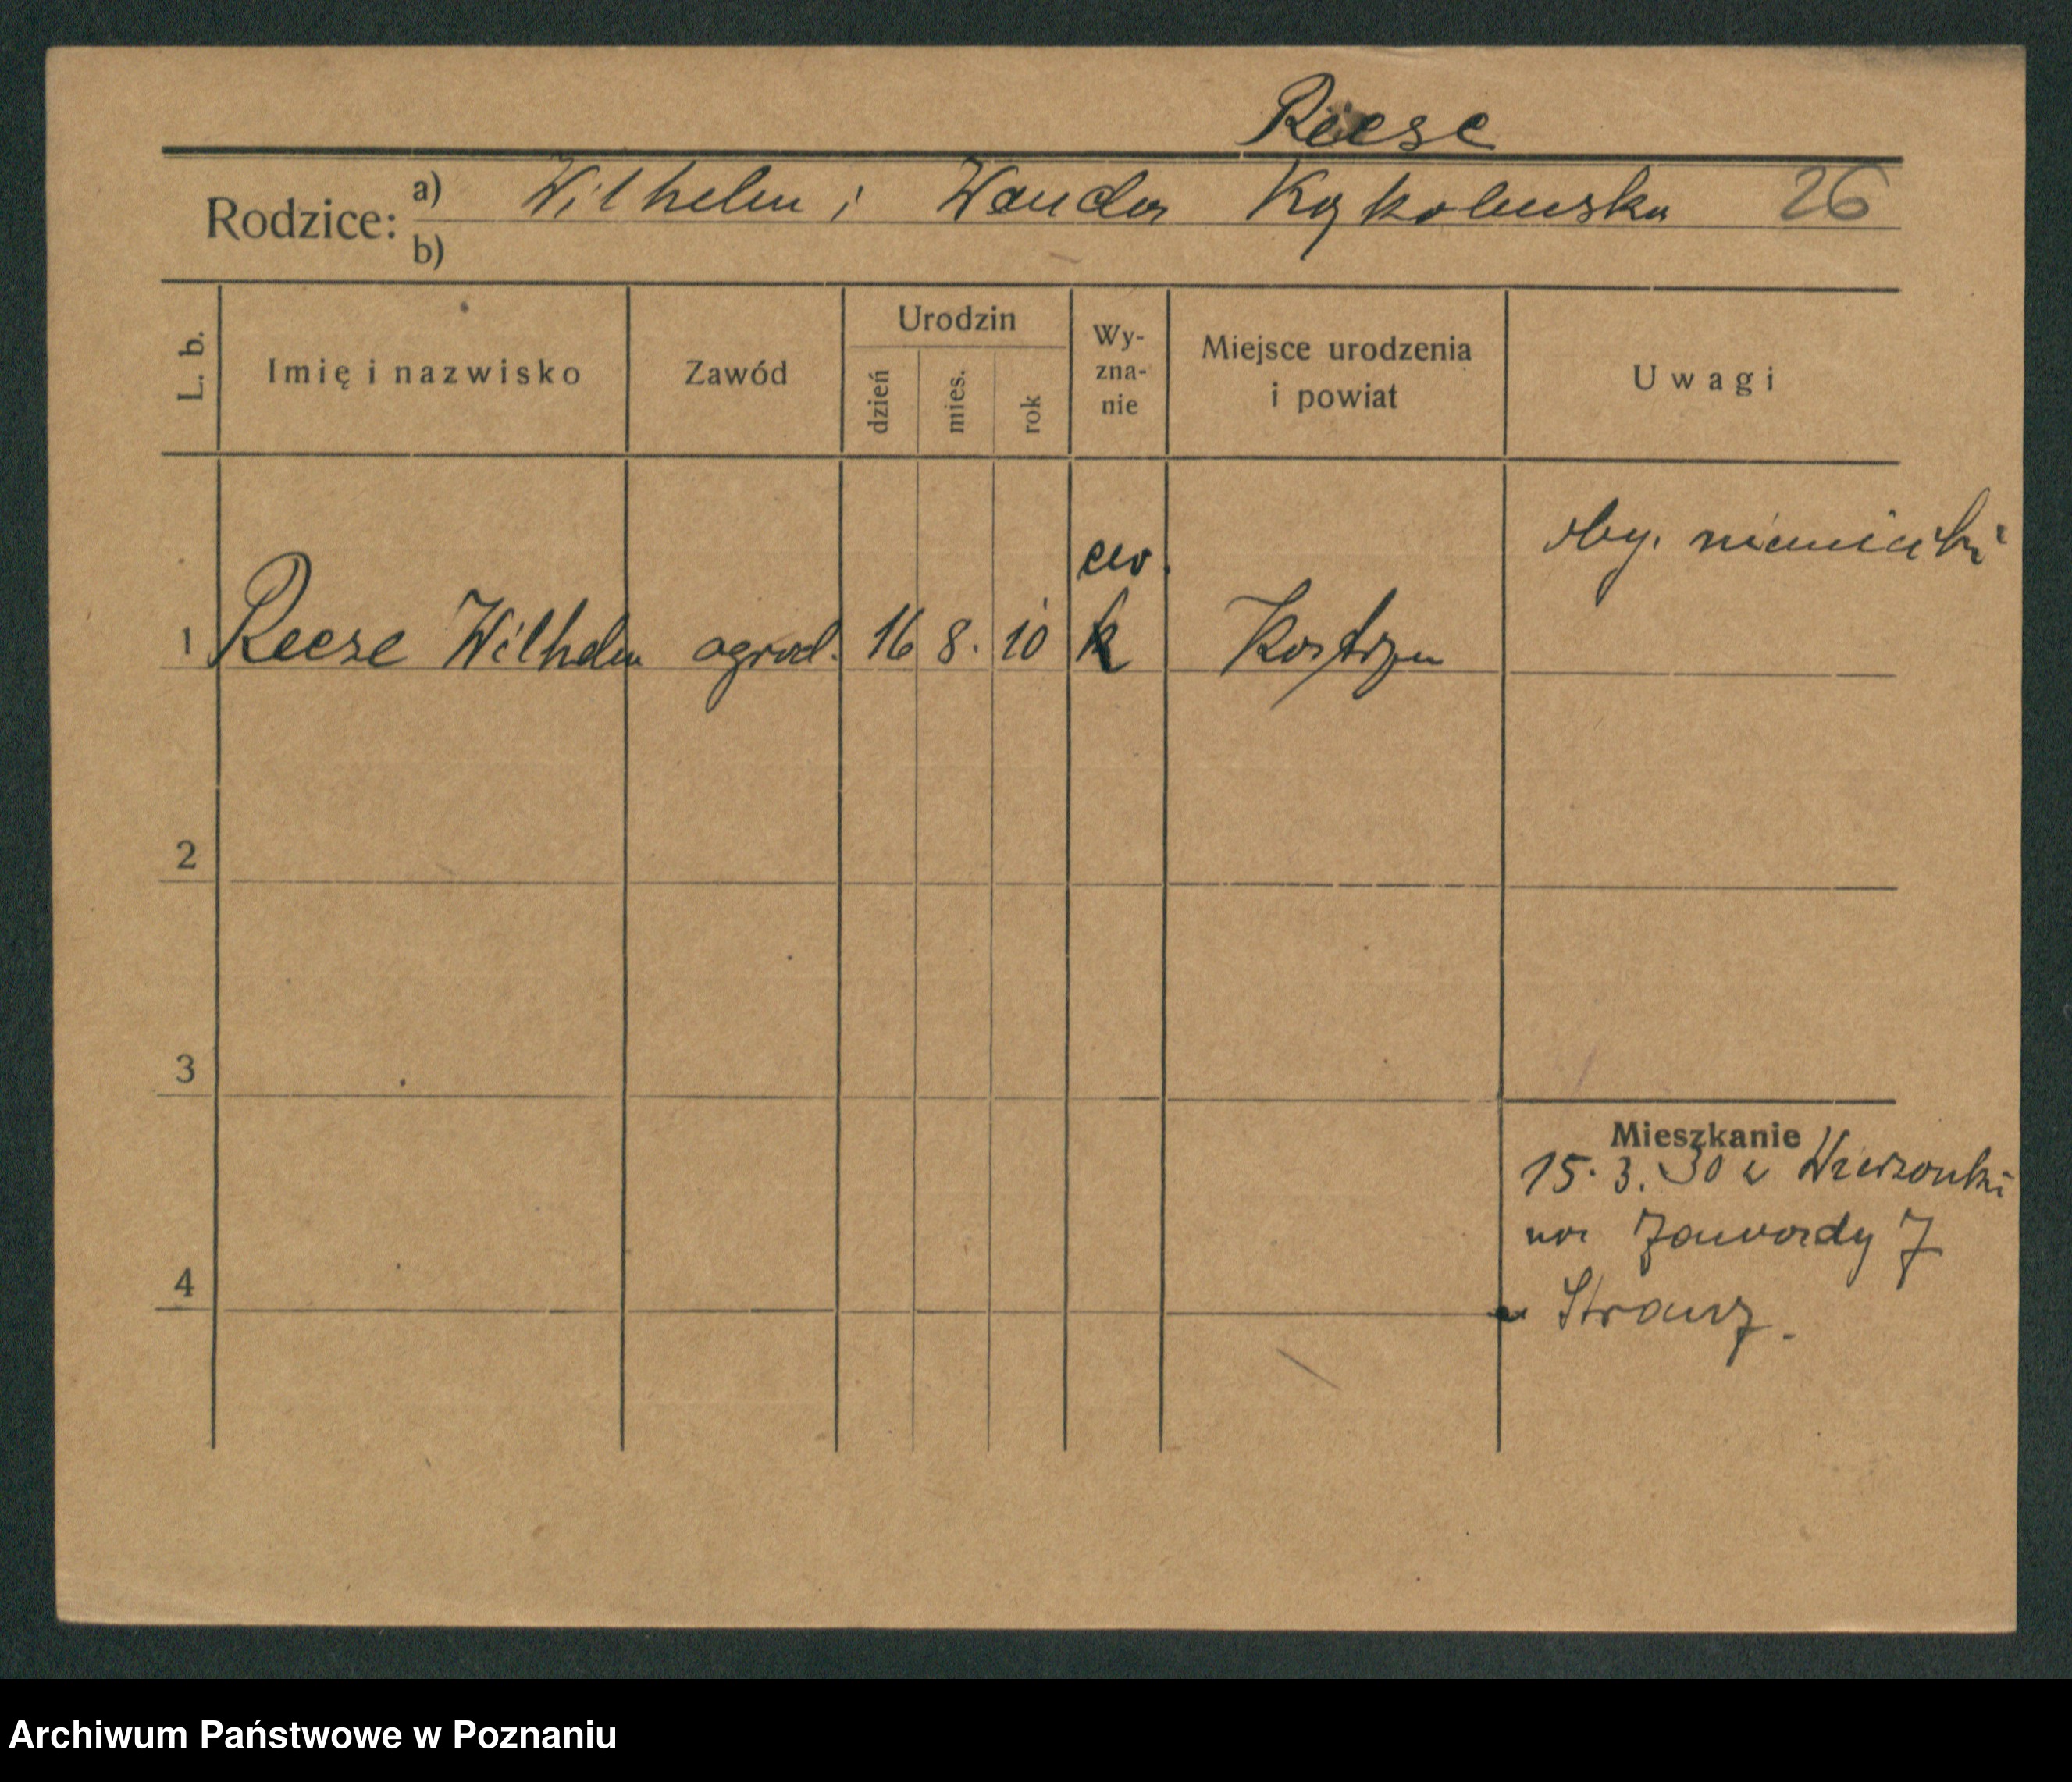 Reese
Rodzice: a) Wilhelm i Wanda Kąkolewska 26
b)
L. b.
Imię i nazwisko
Zawód
Urodzin
dzień
mies.
rok
Wy-
zna-
nie
Miejsce urodzenia
i powiat
Uwagi
oby. niemiecki
ew.
1 Reese Wilhelm ogrod. 16 8. 10 k Kostrzyn
2
3
4
Mieszkanie
15. 3. 30 z Wierzonki
na Zawady 7
u Strausz.
Archiwum Państwowe w Poznaniu